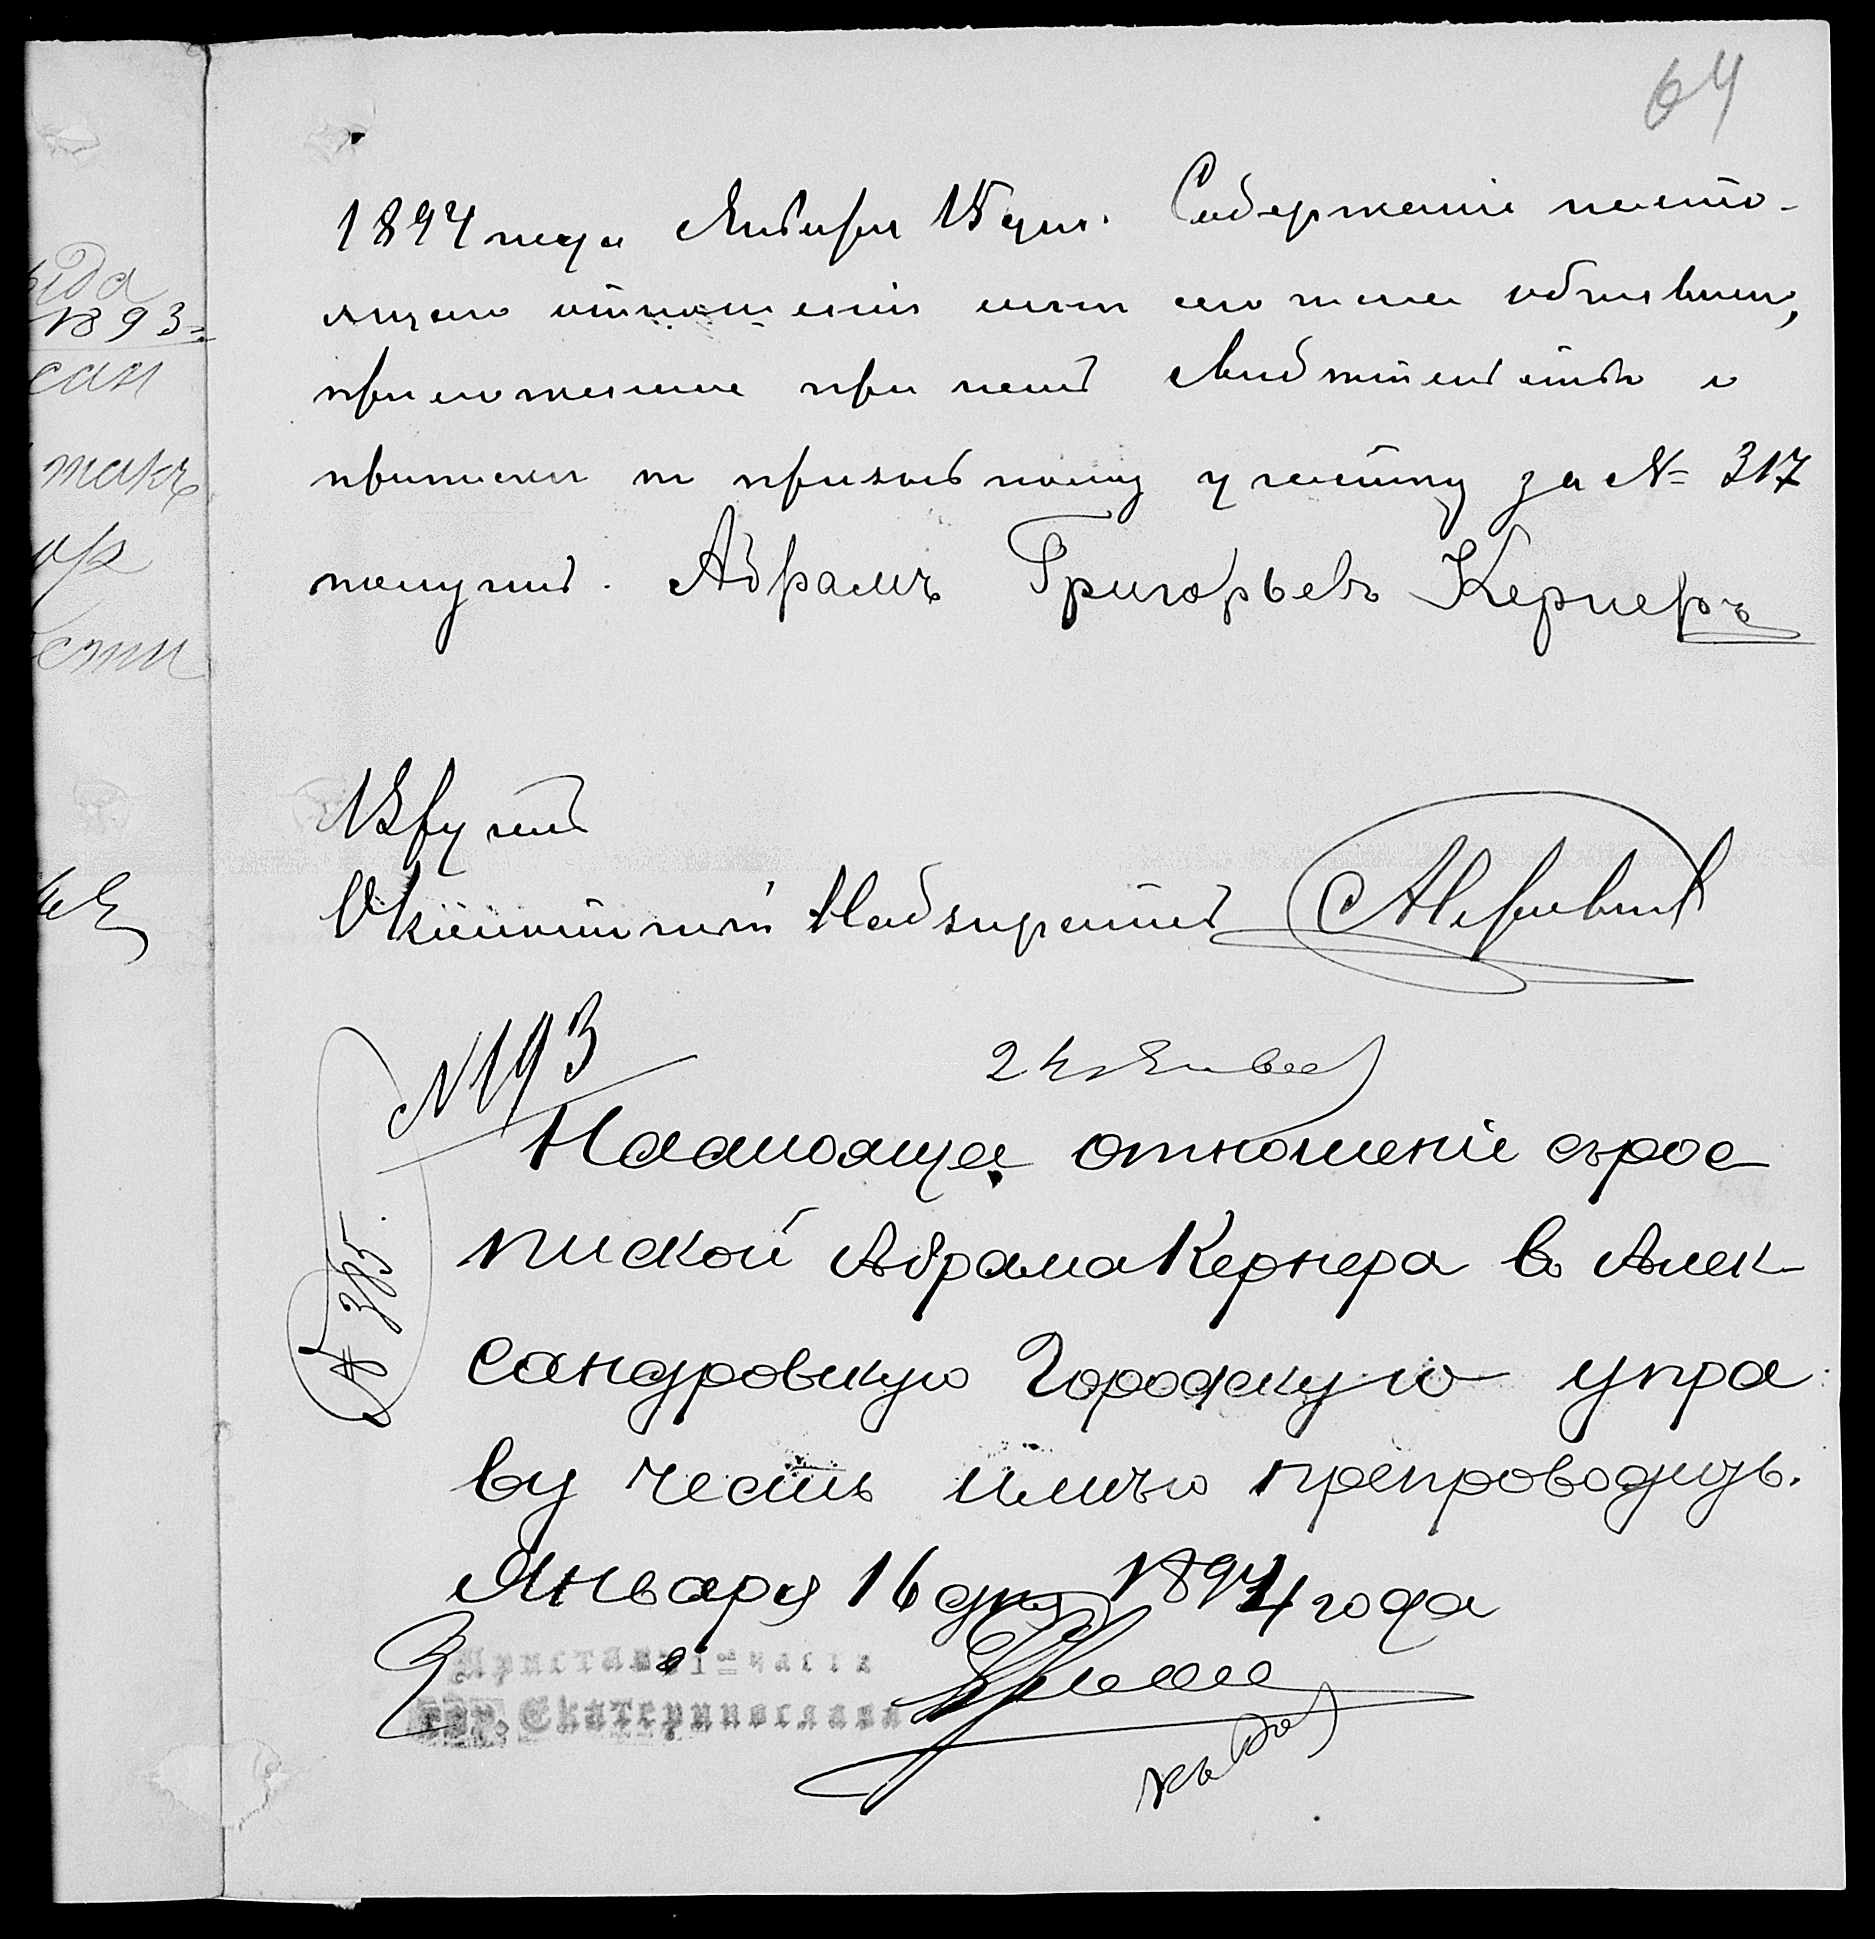 64
1894 года Января 15 дня. Содержаніе насто-
ящаго отношенія мнѣ его жене объявлено,
приложенное при немъ Свидѣтельство о
приписки къ призывному участку за № 317
получилъ. Абрамъ Григорьевъ Кернеръ
Вручилъ
Околоточный Надзиратель
№ 193
24 Января
№ 385.
Настояще отношеніе съ рос
пиской Абрама Кернера въ Алек-
сандровскую Городскую упра
ву честь имѣю препроводить.
Января 16 дня 1894 года
Приставъ 1й части
гор. Екатеринослава
ида
1893
сан
такъ
ор
сти